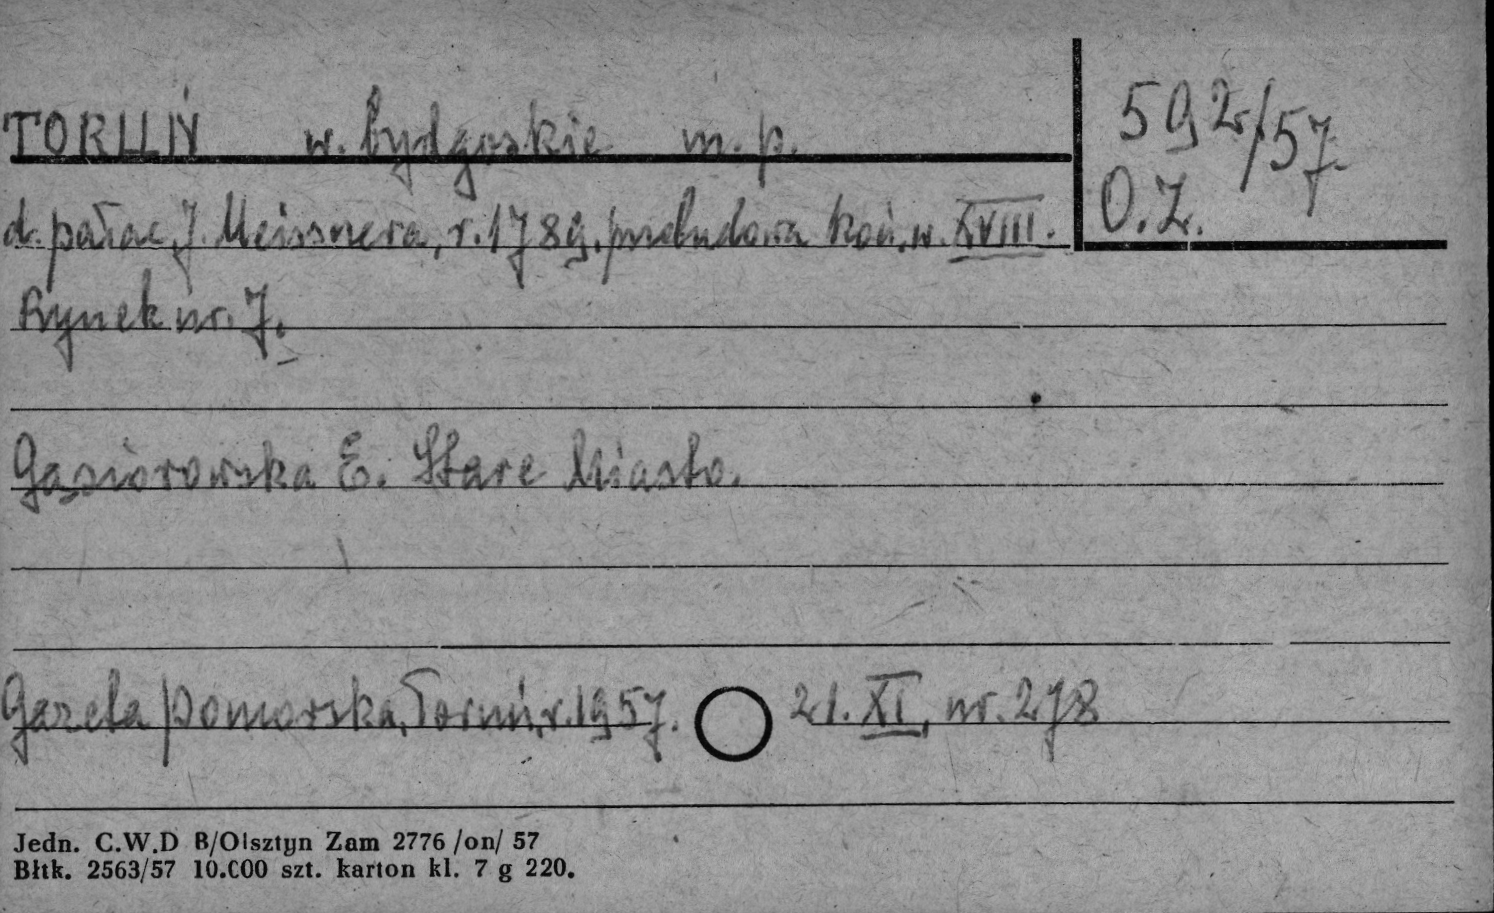 TORUŃ w. bydgoskie m. p.
592/57
d. pałac, J. Meissnera, r. 1789, przebudowa koń. w. XVIII.
O.Z.
Rynek nr. 7.
Gąsiorowska E. Stare Miasto.
Gazeta Pomorska, Toruń, r. 1957. 21. XI, nr. 278
Jedn. C.W.D B/Olsztyn Zam 2776 /on/ 57
Błtk. 2563/57 10.000 szt. karton kl. 7 g 220.